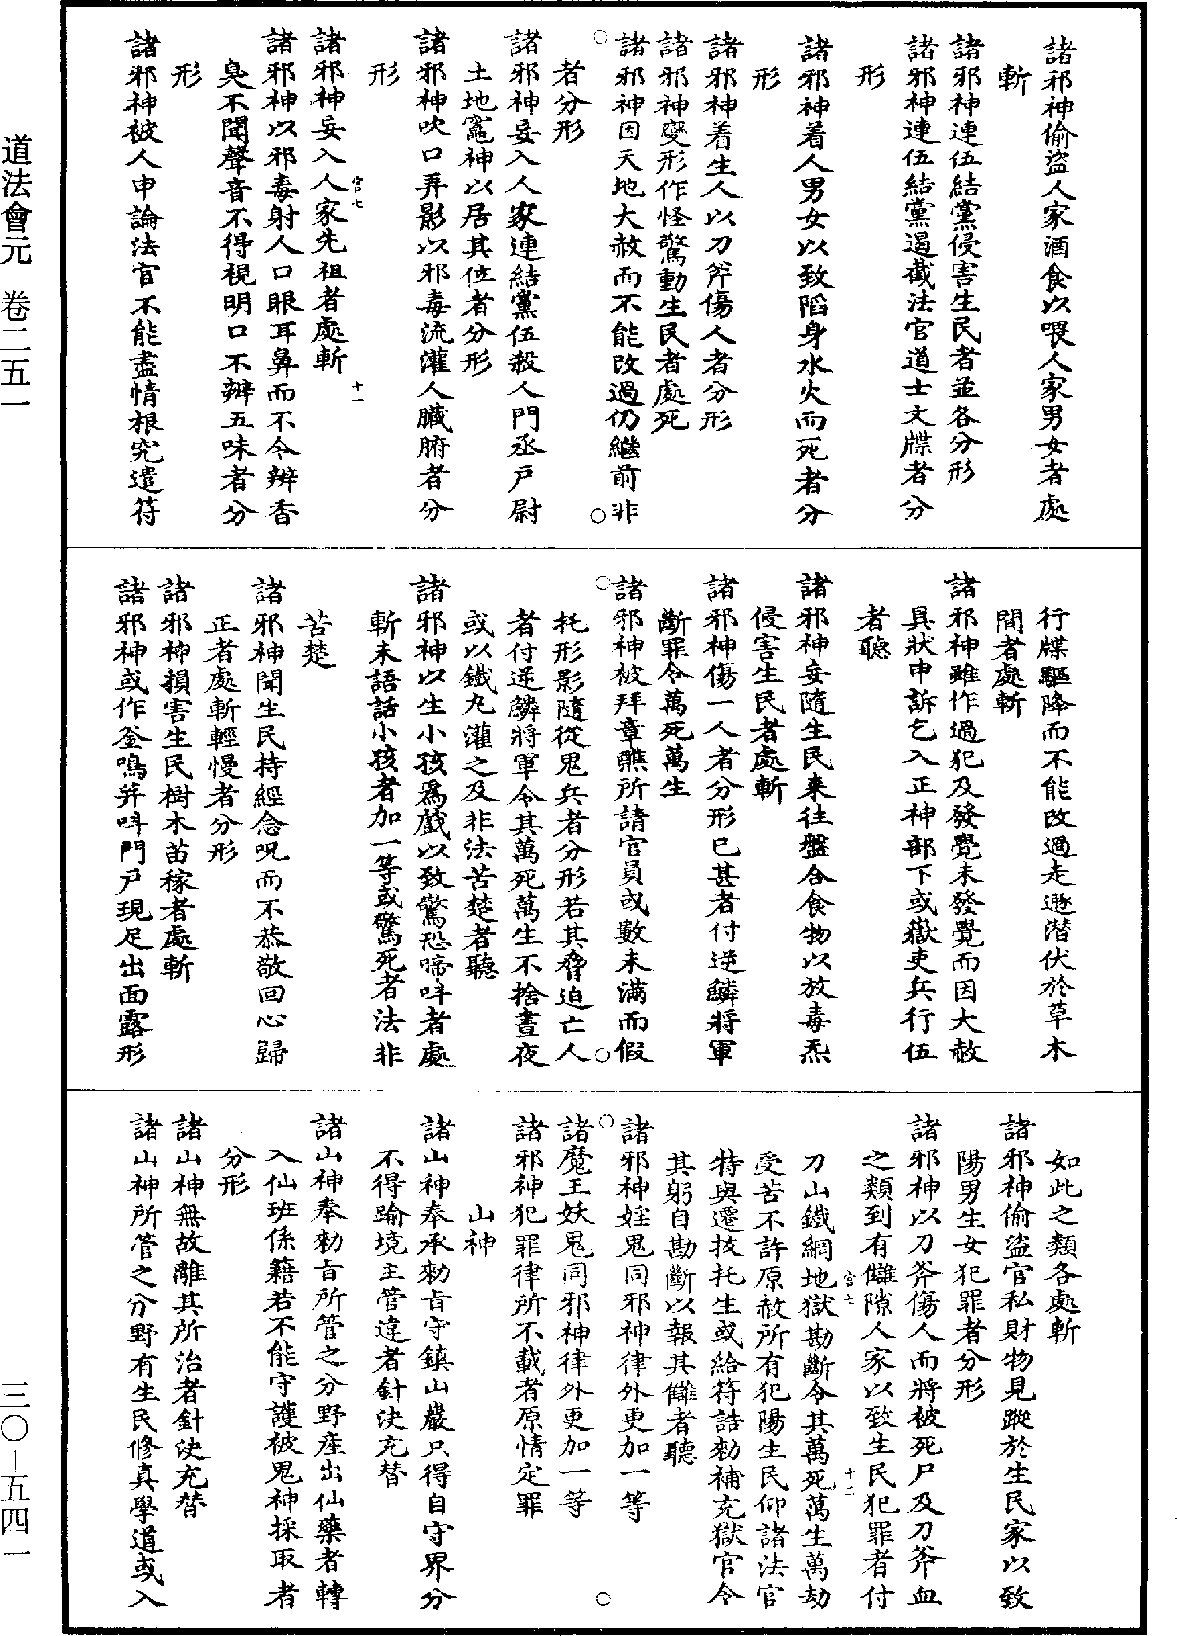 諸邪神偷盜人家酒食以喂人家男女者處
斬
諸邪神連伍結黨侵害生民者並各分形
諸邪神連伍結黨遏截法官道士文牒者分
形
諸邪神着人男女以致陷身水火而死者分
形
諸邪神着生人以刀斧傷人者分形
諸邪神變形作怪驚動生民者處死
諸邪神因天地大赦而不能改過仍繼前非
者分形
諸邪神妄入人家連結黨伍殺人門丞戶尉
土地竈神以居其位者分形
諸邪神吹口弄影以邪毒流灌人臟腑者分
形
諸邪神妄入人家先祖者處斬
官七 十一
諸邪神以邪毒射人口眼耳鼻而不令辨香
臭不聞聲音不得視明口不辨五味者分
形
諸邪神被人申論法官不能盡情根究遣符
行牒驅降而不能改過走遯潛伏於草木
間者處斬
諸邪神雖作過犯及發覺未發覺而因大赦
具狀申訴乞入正神部下或嶽吏兵行伍
者聽
諸邪神妄隨生民來往盤合食物以放毒炁
侵害生民者處斬
諸邪神傷一人者分形已甚者付逆鱗將軍
斷罪令萬死萬生
諸邪神被拜章醮所請官員或數未滿而假
托形影隨從鬼兵者分形若其脅迫亡人
者付逆鱗將軍令其萬死萬生不捨晝夜
或以鐵丸灌之及非法苦楚者聽
諸邪神以生小孩爲戲以致驚恐啼呌者處
斬未語話小孩者加一等或驚死者法非
苦楚
諸邪神聞生民持經念呪而不恭敬回心歸
正者處斬輕慢者分形
諸邪神損害生民樹木苗稼者處斬
諸邪神或作釜鳴并呌門戶現足出面露形
如此之類各處斬
諸邪神偷盜官私財物見蹤於生民家以致
陽男生女犯罪者分形
諸邪神以刀斧傷人而將被死尸及刀斧血
之類到有讎隙人家以致生民犯罪者付
刀山鐵網地獄勘斷令其萬死萬生萬劫
官七 十二
受苦不許原赦所有犯陽生民仰諸法官
特與遷拔托生或給符誥勑補充獄官令
其躬自勘斷以報其讎者聽
諸邪神婬鬼同邪神律外更加一等
諸魔王妖鬼同邪神律外更加一等
諸邪神犯罪律所不載者原情定罪
山神
諸山神奉承勑旨守鎮山嚴只得自守界分
不得踰境主管違者針決充替
諸山神奉勑旨所管之分野産出仙藥者轉
入仙班係籍若不能守護被鬼神採取者
分形
諸山神無故離其所治者針決充替
諸山神所管之分野有生民修真學道或入
道法會元 卷二五一
三〇—五四一